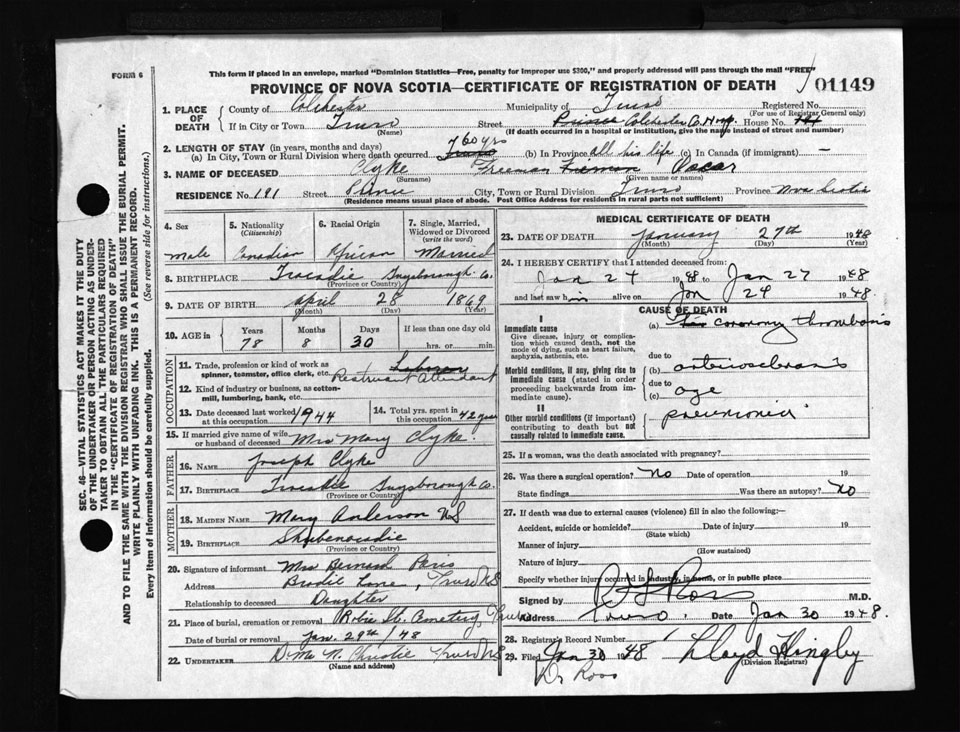 FORM 6
This form if placed in an envelope, marked "Dominion Statistics—Free, penalty for improper use $300," and properly addressed will pass through the mail "FREE"
PROVINCE OF NOVA SCOTIA—CERTIFICATE OF REGISTRATION OF DEATH
01149
1. PLACE OF DEATH
County of Colchester Municipality of Truro Registered No.
(For use of Registrar General only)
If in City or Town Truro Street Prince Colchester Co. Hosp. House No.
(Name) (If death occurred in a hospital or institution, give the name instead of street and number)
2. LENGTH OF STAY (in years, months and days)
(a) In City, Town or Rural Division where death occurred 60 yrs (b) In Province all his life (c) In Canada (if immigrant) —
3. NAME OF DECEASED Clyke Freeman Oscar
(Surname) (Given name or names)
RESIDENCE No. 191 Street Prince City, Town or Rural Division Truro Province Nova Scotia
(Residence means usual place of abode. Post Office Address for residents in rural parts not sufficient)
4. Sex
5. Nationality
(Citizenship)
6. Racial Origin
7. Single, Married, Widowed or Divorced
(write the word)
male Canadian African Married
8. BIRTHPLACE Tracadie Guysborough Co.
(Province or Country)
9. DATE OF BIRTH April 28 1869
(Month) (Day) (Year)
10. AGE in
Years Months Days If less than one day old
78 8 30 hrs. or min.
OCCUPATION
11. Trade, profession or kind of work as
spinner, teamster, office clerk, etc. Restaurant Attendant
12. Kind of industry or business, as cotton-
mill, lumbering, bank, etc.
13. Date deceased last worked at this occupation 1944
14. Total yrs. spent in this occupation 42 years
15. If married give name of wife or husband of deceased Mrs Mary Clyke.
FATHER
16. NAME Joseph Clyke
17. BIRTHPLACE Tracadie Guysborough Co.
(Province or Country)
MOTHER
18. MAIDEN NAME Mary Anderson NS
19. BIRTHPLACE Shubenacadie
(Province or Country)
20. Signature of informant Mrs Bernard Paris
Address Brodie Lane, Truro NS
Relationship to deceased Daughter
21. Place of burial, cremation or removal Robie St. Cemetery, Truro
Date of burial or removal Jan. 29th/48
22. UNDERTAKER Christie Truro NS
(Name and address)
MEDICAL CERTIFICATE OF DEATH
23. DATE OF DEATH January 27th 1948
(Month) (Day) (Year)
24. I HEREBY CERTIFY that I attended deceased from:
Jan 24 1948 to Jan 27 1948
and last saw him alive on Jan 24 1948.
CAUSE OF DEATH
I
Immediate cause
Give disease, injury or complication which caused death, not the mode of dying, such as heart failure, asphyxia, asthenia, etc.
(a) coronary thrombosis
due to
Morbid conditions, if any, giving rise to immediate cause (stated in order proceeding backwards from immediate cause).
(b) arteriosclerosis
due to
(c) age
II
Other morbid conditions (if important) contributing to death but not causally related to immediate cause.
pneumonia
25. If a woman, was the death associated with pregnancy?
26. Was there a surgical operation? No Date of operation 19
State findings Was there an autopsy? No
27. If death was due to external causes (violence) fill in also the following:—
Accident, suicide or homicide? Date of injury 19
(State which)
Manner of injury
(How sustained)
Nature of injury
Specify whether injury occurred in industry, in home, or in public place
Signed by Ross M.D.
Address Truro Date Jan 30 1948.
28. Registrar's Record Number
29. Filed Jan 30 1948 Lloyd Hingley
(Division Registrar)
Dr Ross
SEC. 46—VITAL STATISTICS ACT MAKES IT THE DUTY
OF THE UNDERTAKER OR PERSON ACTING AS UNDER-
TAKER TO OBTAIN ALL THE PARTICULARS REQUIRED
IN THE "CERTIFICATE OF REGISTRATION OF DEATH"
AND TO FILE THE SAME WITH THE DIVISION REGISTRAR WHO SHALL ISSUE THE BURIAL PERMIT.
WRITE PLAINLY WITH UNFADING INK. THIS IS A PERMANENT RECORD.
Every item of information should be carefully supplied. (See reverse side for instructions.)